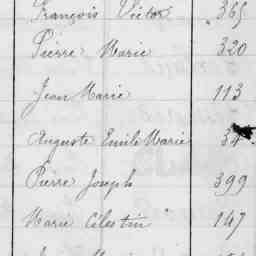 François Victor 365
Pierre Marie 320
Jean Marie 113
Auguste Emile Marie 34
Pierre Joseph 399
Marie Célestin 147